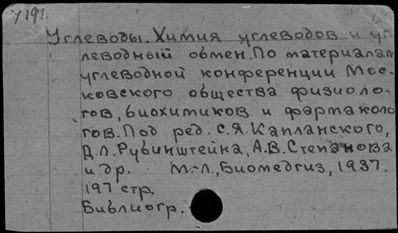 7191.
Углеводы. Химия углеводов и уг-
леводный обмен. По материалам
углеводной конференции Мос-
ковского общества физиоло-
гов, биохимиков и фармаколо
гов. Под ред. С.Я. Капланского,
Д.Л. Рубинштейна, А.В. Степанова
и др. М.-Л., Биомедгиз, 1937.
197 стр.
Библиогр.